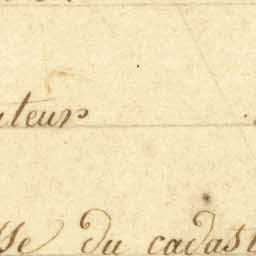 uteurs
sse du cadast